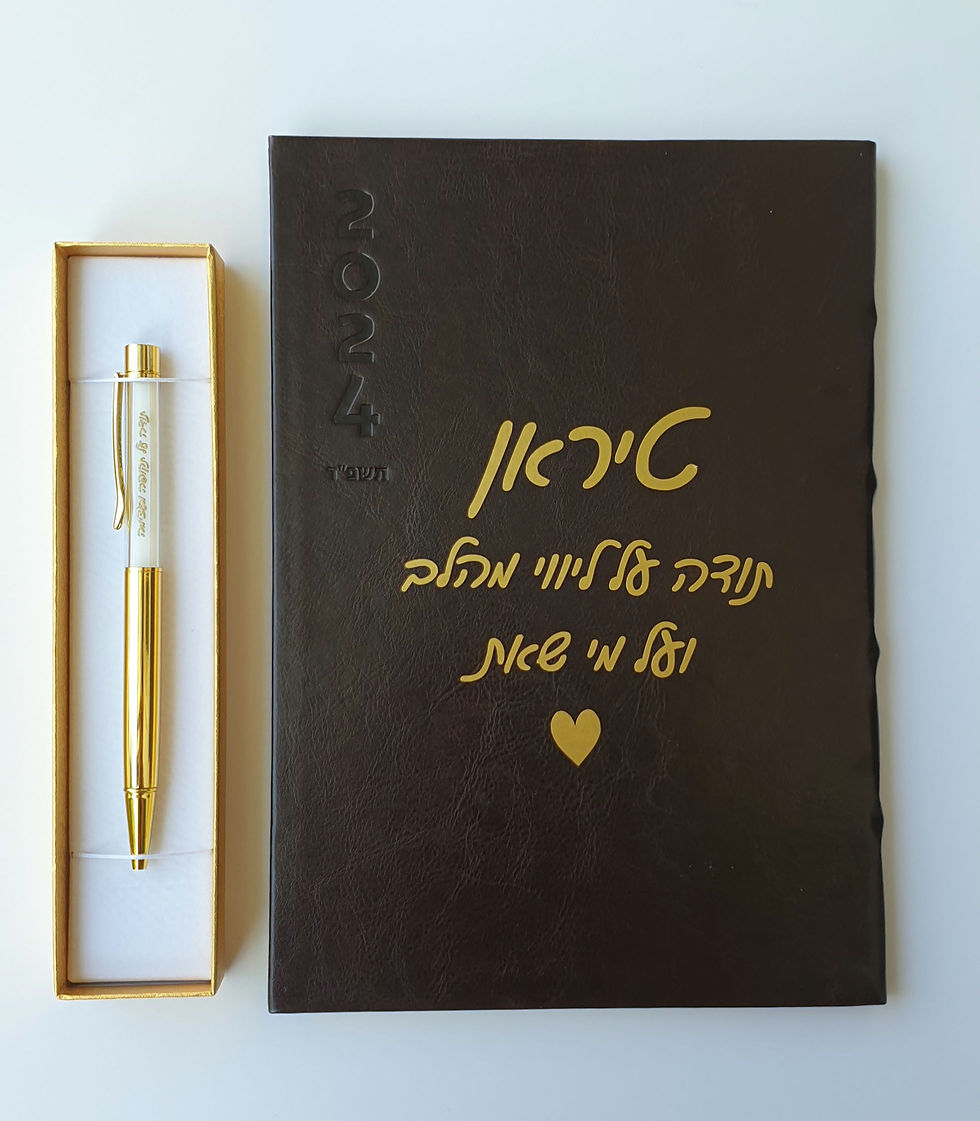 2024
תשפ"ד
טיראן
תודה על ליווי מהלב
ועל מי שאת